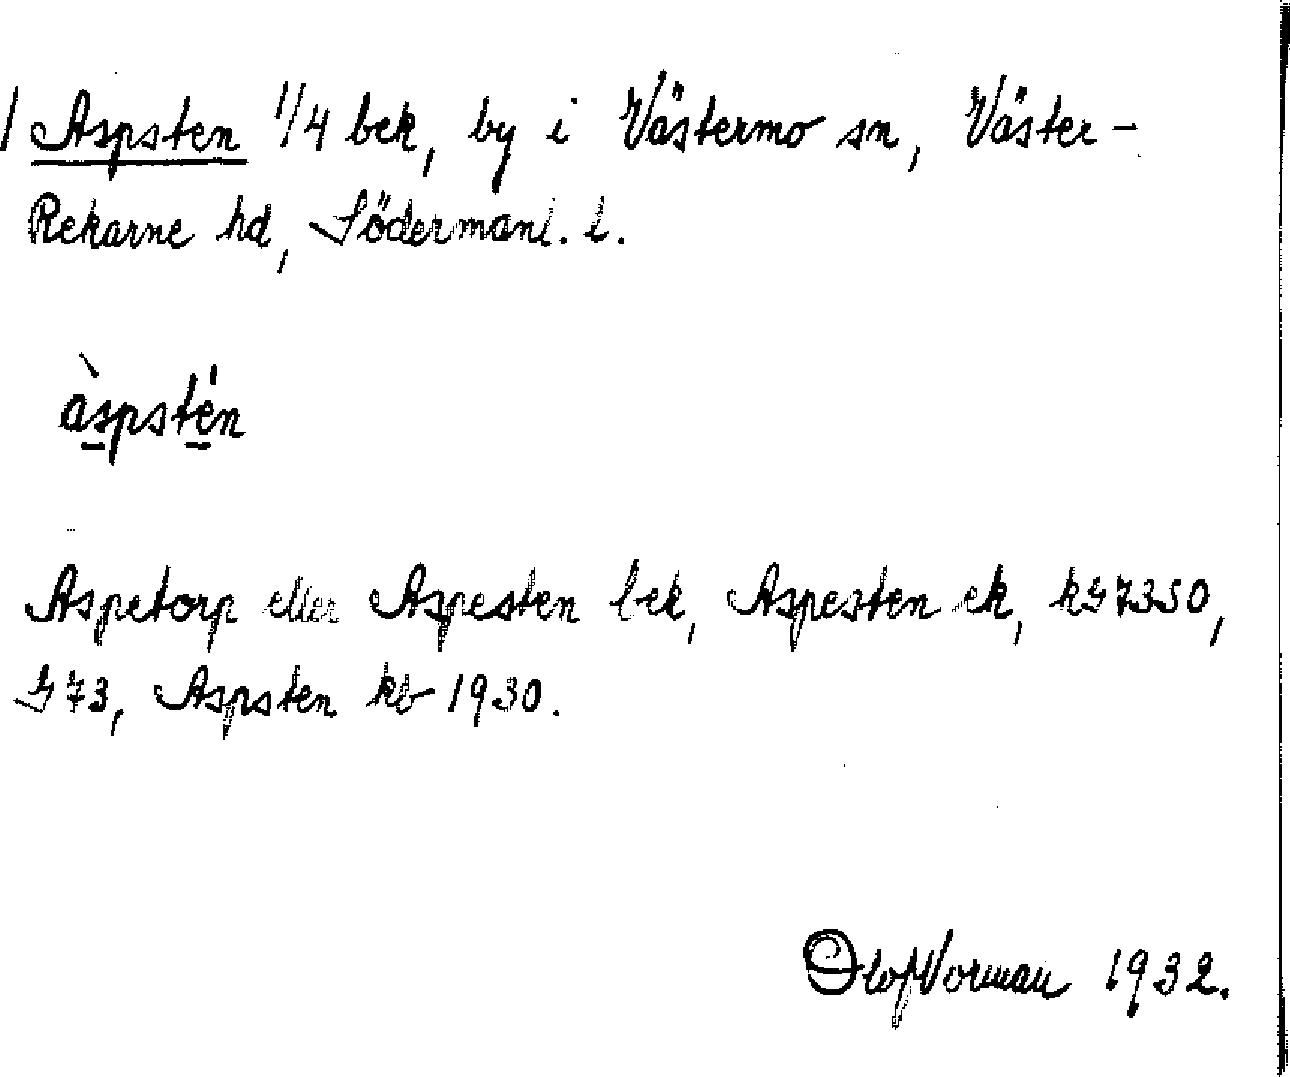 / Aspsten 1/4 bek, by i Västermo sn, Väster-
Rekarne hd, Södermanl. l.
àspstén
Aspetorp eller Aspesten bek, Aspesten ek, kG7350,
G73, Aspsten kb 1930.
Olof Norman 1932.